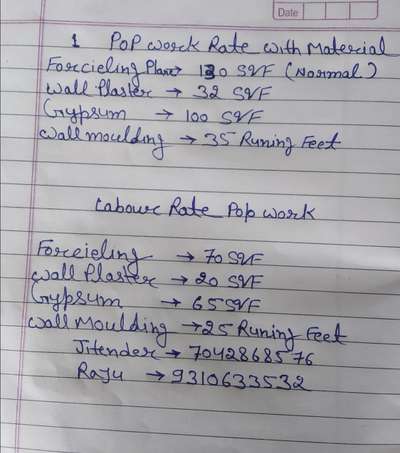 Date
1 PoP worck Rate with Material
Forccieling Plane → 130 SqF (Normal)
Wall Plaster → 32 SqF
Gypsum → 100 SqF
Wall moulding → 35 Runing Feet
Labour Rate Pop work
Forcieling → 70 SqF
Wall Plaster → 20 SqF
Gypsum → 65 SqF
Wall Moulding → 25 Runing Feet
Jitender → 7042868576
Raju → 9310633532